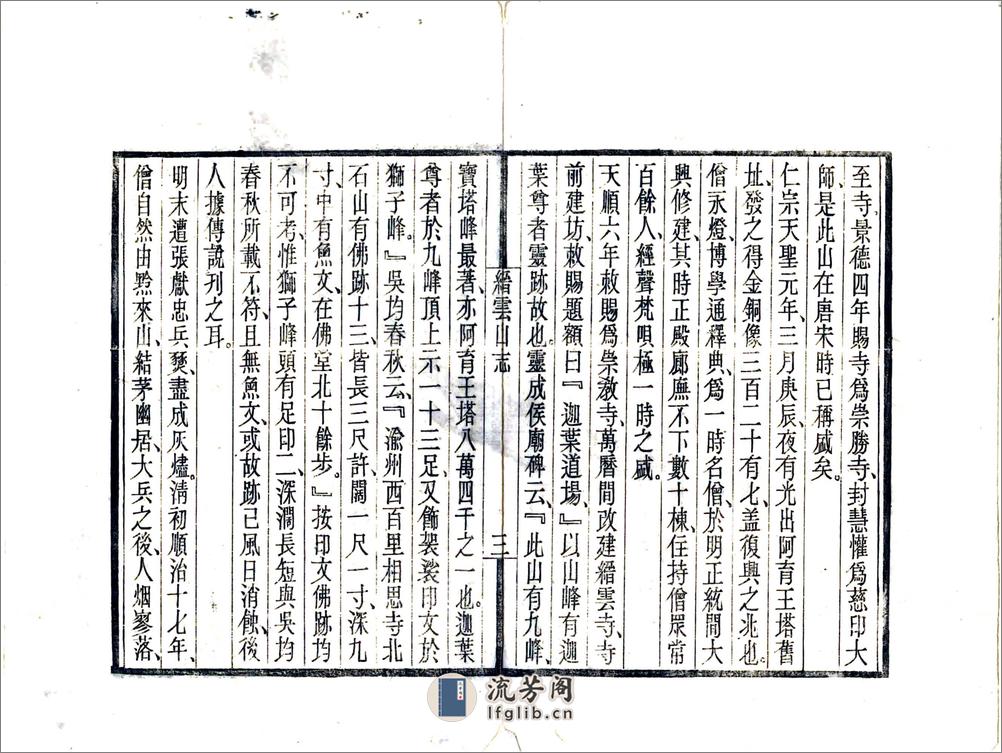 至寺景德四年賜寺爲崇勝寺、封慧懽爲慈印大
師、是此山在唐宋時已稱盛矣。
仁宗天聖元年、三月庚辰、夜有光出阿育王塔舊
址、發之得金銅像三百二十有七、蓋復興之兆也。
僧永燈、博學通釋典、爲一時名僧、於明正統間大
興修建、其時正殿廊廡不下數十棟、住持僧眾常
百餘人、經聲梵唄極一時之盛。
天順六年敕賜爲崇教寺、萬曆間改建縉雲寺、寺
前建坊、敕賜題額曰『迦葉道場、』以山峰有迦
葉尊者靈跡故也。靈成侯廟碑云、『此山有九峰、
縉雲山志
三
寶塔峰最著、亦阿育王塔八萬四千之一也。迦葉
尊者於九峰頂上示一十三足、又飾袈裟印文於
獅子峰。』吳均春秋云、『渝州西百里相思寺北
石山有佛跡十三、皆長三尺許、闊一尺一寸、深九
寸、中有魚文、在佛堂北十餘步。』按印文佛跡均
不可考、惟獅子峰頭有足印二、深濶長短與吳均
春秋所載不符、且無魚文、或故跡已風日消蝕、後
人據傳說刊之耳。
明末遭張獻忠兵燹、盡成灰燼。清初順治十七年、
僧自然由黔來山、結茅幽居、大兵之後、人烟寥落、
流芳阁
lfglib.cn